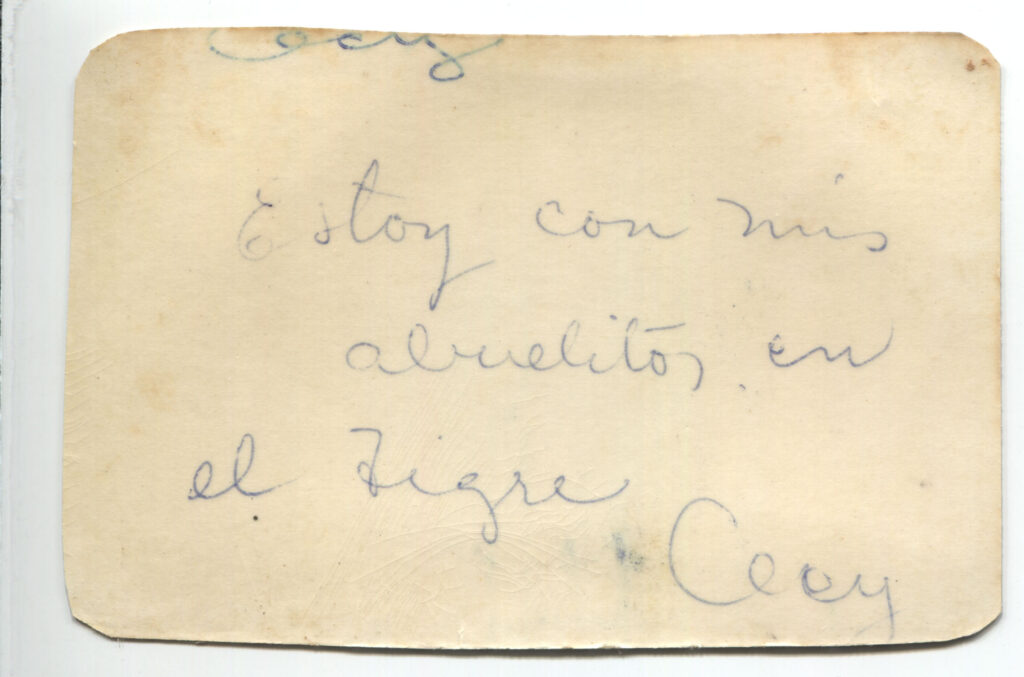 Cecy
Estoy con mis
abuelitos, en
el Tigre
Cecy